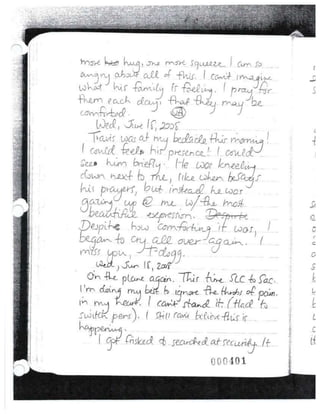 more hug, one more squeeze. I am so
angry about all of this. I can't imagine
what his family is feeling. I pray for
them each day, that they may be
comforted.
Wed, June 18, 2008
Travis was at my bedside this morning!
I could feel his presence! I could
see him briefly. He was kneeling
down next to me, like when he says
his prayers, but instead he was
gazing up @ me w/ the most
beautiful expression. Despite
Despite how comforting it was, I
began to cry all over again. I
miss you, T-dogg.
Wed, Jun 18, 2008
On the plane again. This time SLC to Sac.
I'm doing my best to ignore the throbs of pain
in my heart. I can't stand it. (Had to
switch pens). I still can't believe this is
happening.
I got frisked & searched at security. It
000401